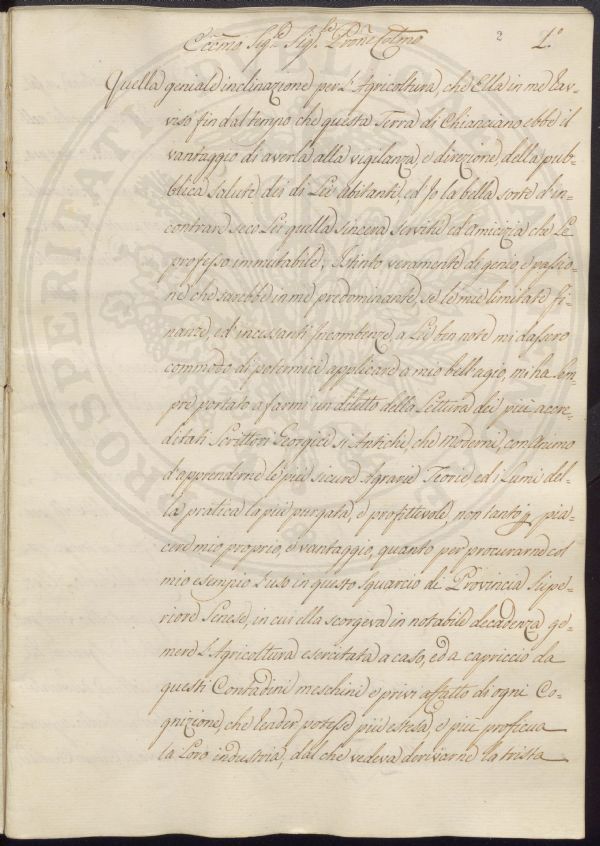 Eccmo Sigre Sigre Prone Colmo
2
1.º
Quella geniale inclinazione per l'Agricoltura, che Ella in me rav-
visò fin dal tempo che questa Terra di Chianciano ebbe il
vantaggio di averla alla vigilanza, e direzione della pub-
blica salute dei di Lei abitanti, ed Io la bella sorte d'in-
contrare seco Lei quella sincera servitù ed amicizia che Le
professo immutabile; Istinto veramente di genio, e passio-
ne che sarebbe in me predominante, se le mie limitate fi-
nanze, ed'incessanti Incombenze, a Lei ben note mi dassero
commodo di potermici applicare a mio bell'agio, mi ha sem-
pre portato a farmi un diletto della Lettura dei più accre-
ditati Scrittori Georgici sì Antichi, che Moderni, con Animo
d'apprenderne le più sicure Agrarie Teorie ed i Lumi del-
la pratica la più purgata, e profittevole, non tanto p pia-
cere mio proprio, e vantaggio, quanto per procurarne col
mio esempio l'uso in questo squarcio di Provincia Supe-
riore Senese, in cui ella scorgeva in notabile decadenza ge-
mere l'Agricoltura esercitata a caso, ed a capriccio da
questi Contadini meschini e privi affatto di ogni Co-
gnizione, che render potesse più estesa, e più proficua
la Loro industria, dal che vedeva derivarne la trista
PROSPERITATI PUBLICAE